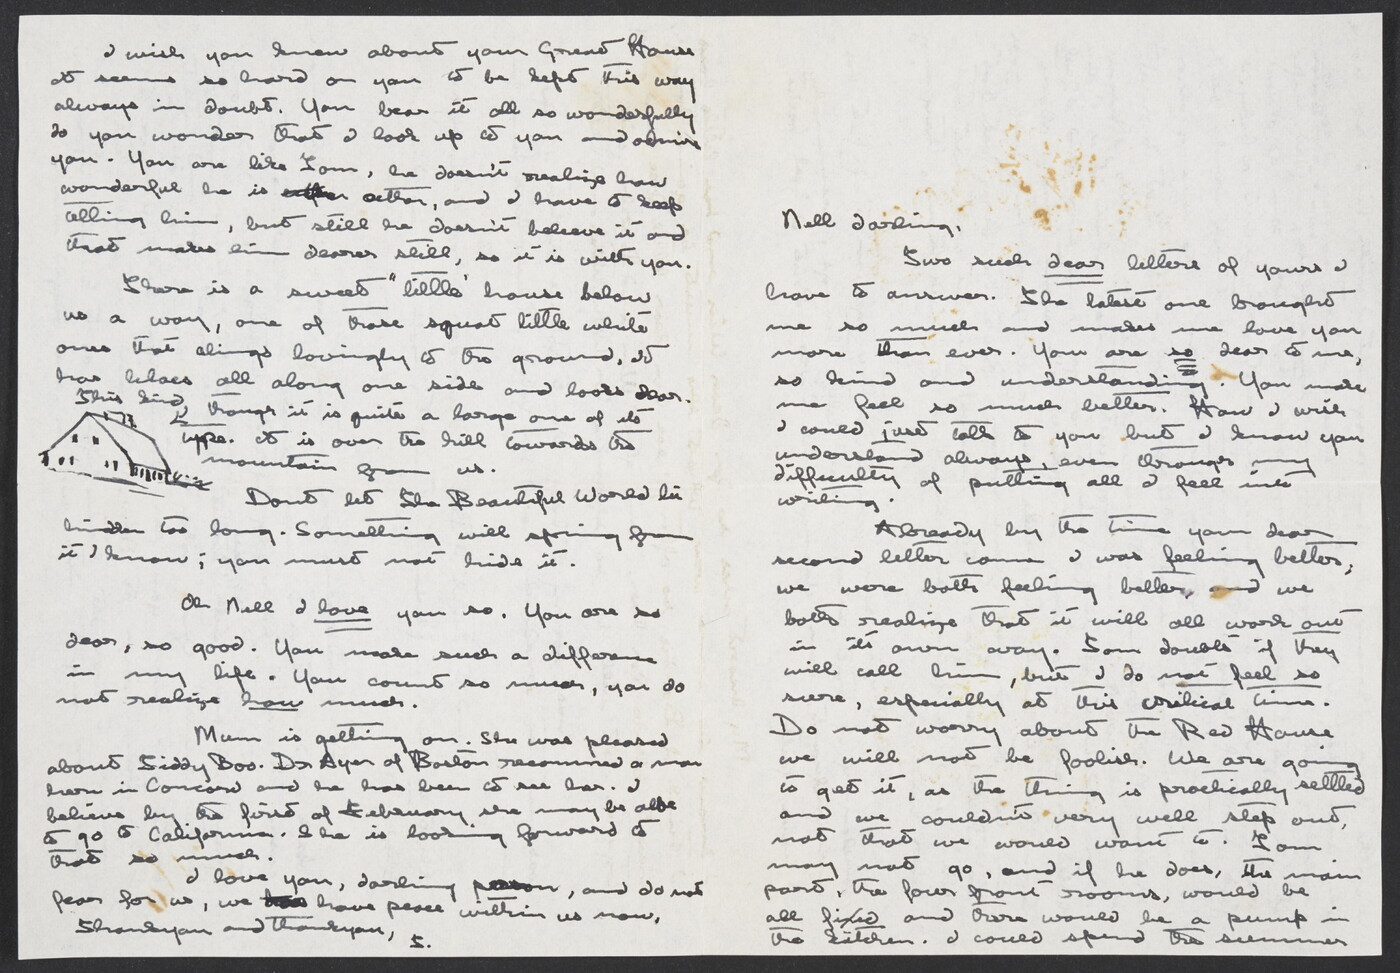 Nell darling,
Two such dear letters of yours I
have to answer. The latest one brought
me so much and makes me love you
more than ever. You are so dear to me,
so kind and understanding. You make
me feel so much better. How I wish
I could just talk to you but I know you
understand always, even though my
difficulty of putting all I feel into
writing.
Already by the time your dear
second letter came I was feeling better,
we were both feeling better, and we
both realize that it will all work out
in its own way. Tom doubts if they
will call him, but I do not feel so
sure, especially at this critical time.
Do not worry about the Red House
we will not be foolish. We are going
to get it, as the thing is practically settled
and we couldn't very well step out,
not that we would want to. Tom
may not go, and if he does, the main
part, the four front rooms, would be
all fixed and there would be a pump in
the kitchen. I could spend the summer
I wish you knew about your Great House
it seems so hard on you to be kept this way
always in doubt. You bear it all so wonderfully
do you wonder that I look up to you and admire
you. You are like Tom, he doesn't realize how
wonderful he is either, and I have to keep
telling him, but still he doesn't believe it and
that makes him dearer still, so it is with you.
There is a sweet "little" house below
us a way, one of those squat little white
ones that clings lovingly to the ground, it
has lilacs all along one side and looks dear.
This kind, though it is quite a large one of its
type. It is over the hill towards the
mountain from us.
Dont let The Beautiful World lie
hidden too long. Something will spring from
it I know; you must not hide it.
Oh Nell I love you so. You are so
dear, so good. You make such a difference
in my life. You count so much, you do
not realize how much.
Mum is getting on. She was pleased
about Siddy Boo. Dr Ayer of Boston recommed a man
here in Concord and he has been to see her. I
believe by the first of February she may be able
to go to California. She is looking forward to
that so much.
I love you, darling person, and do not
fear for us, we have peace within us now.
Thankyou and thankyou,
S.